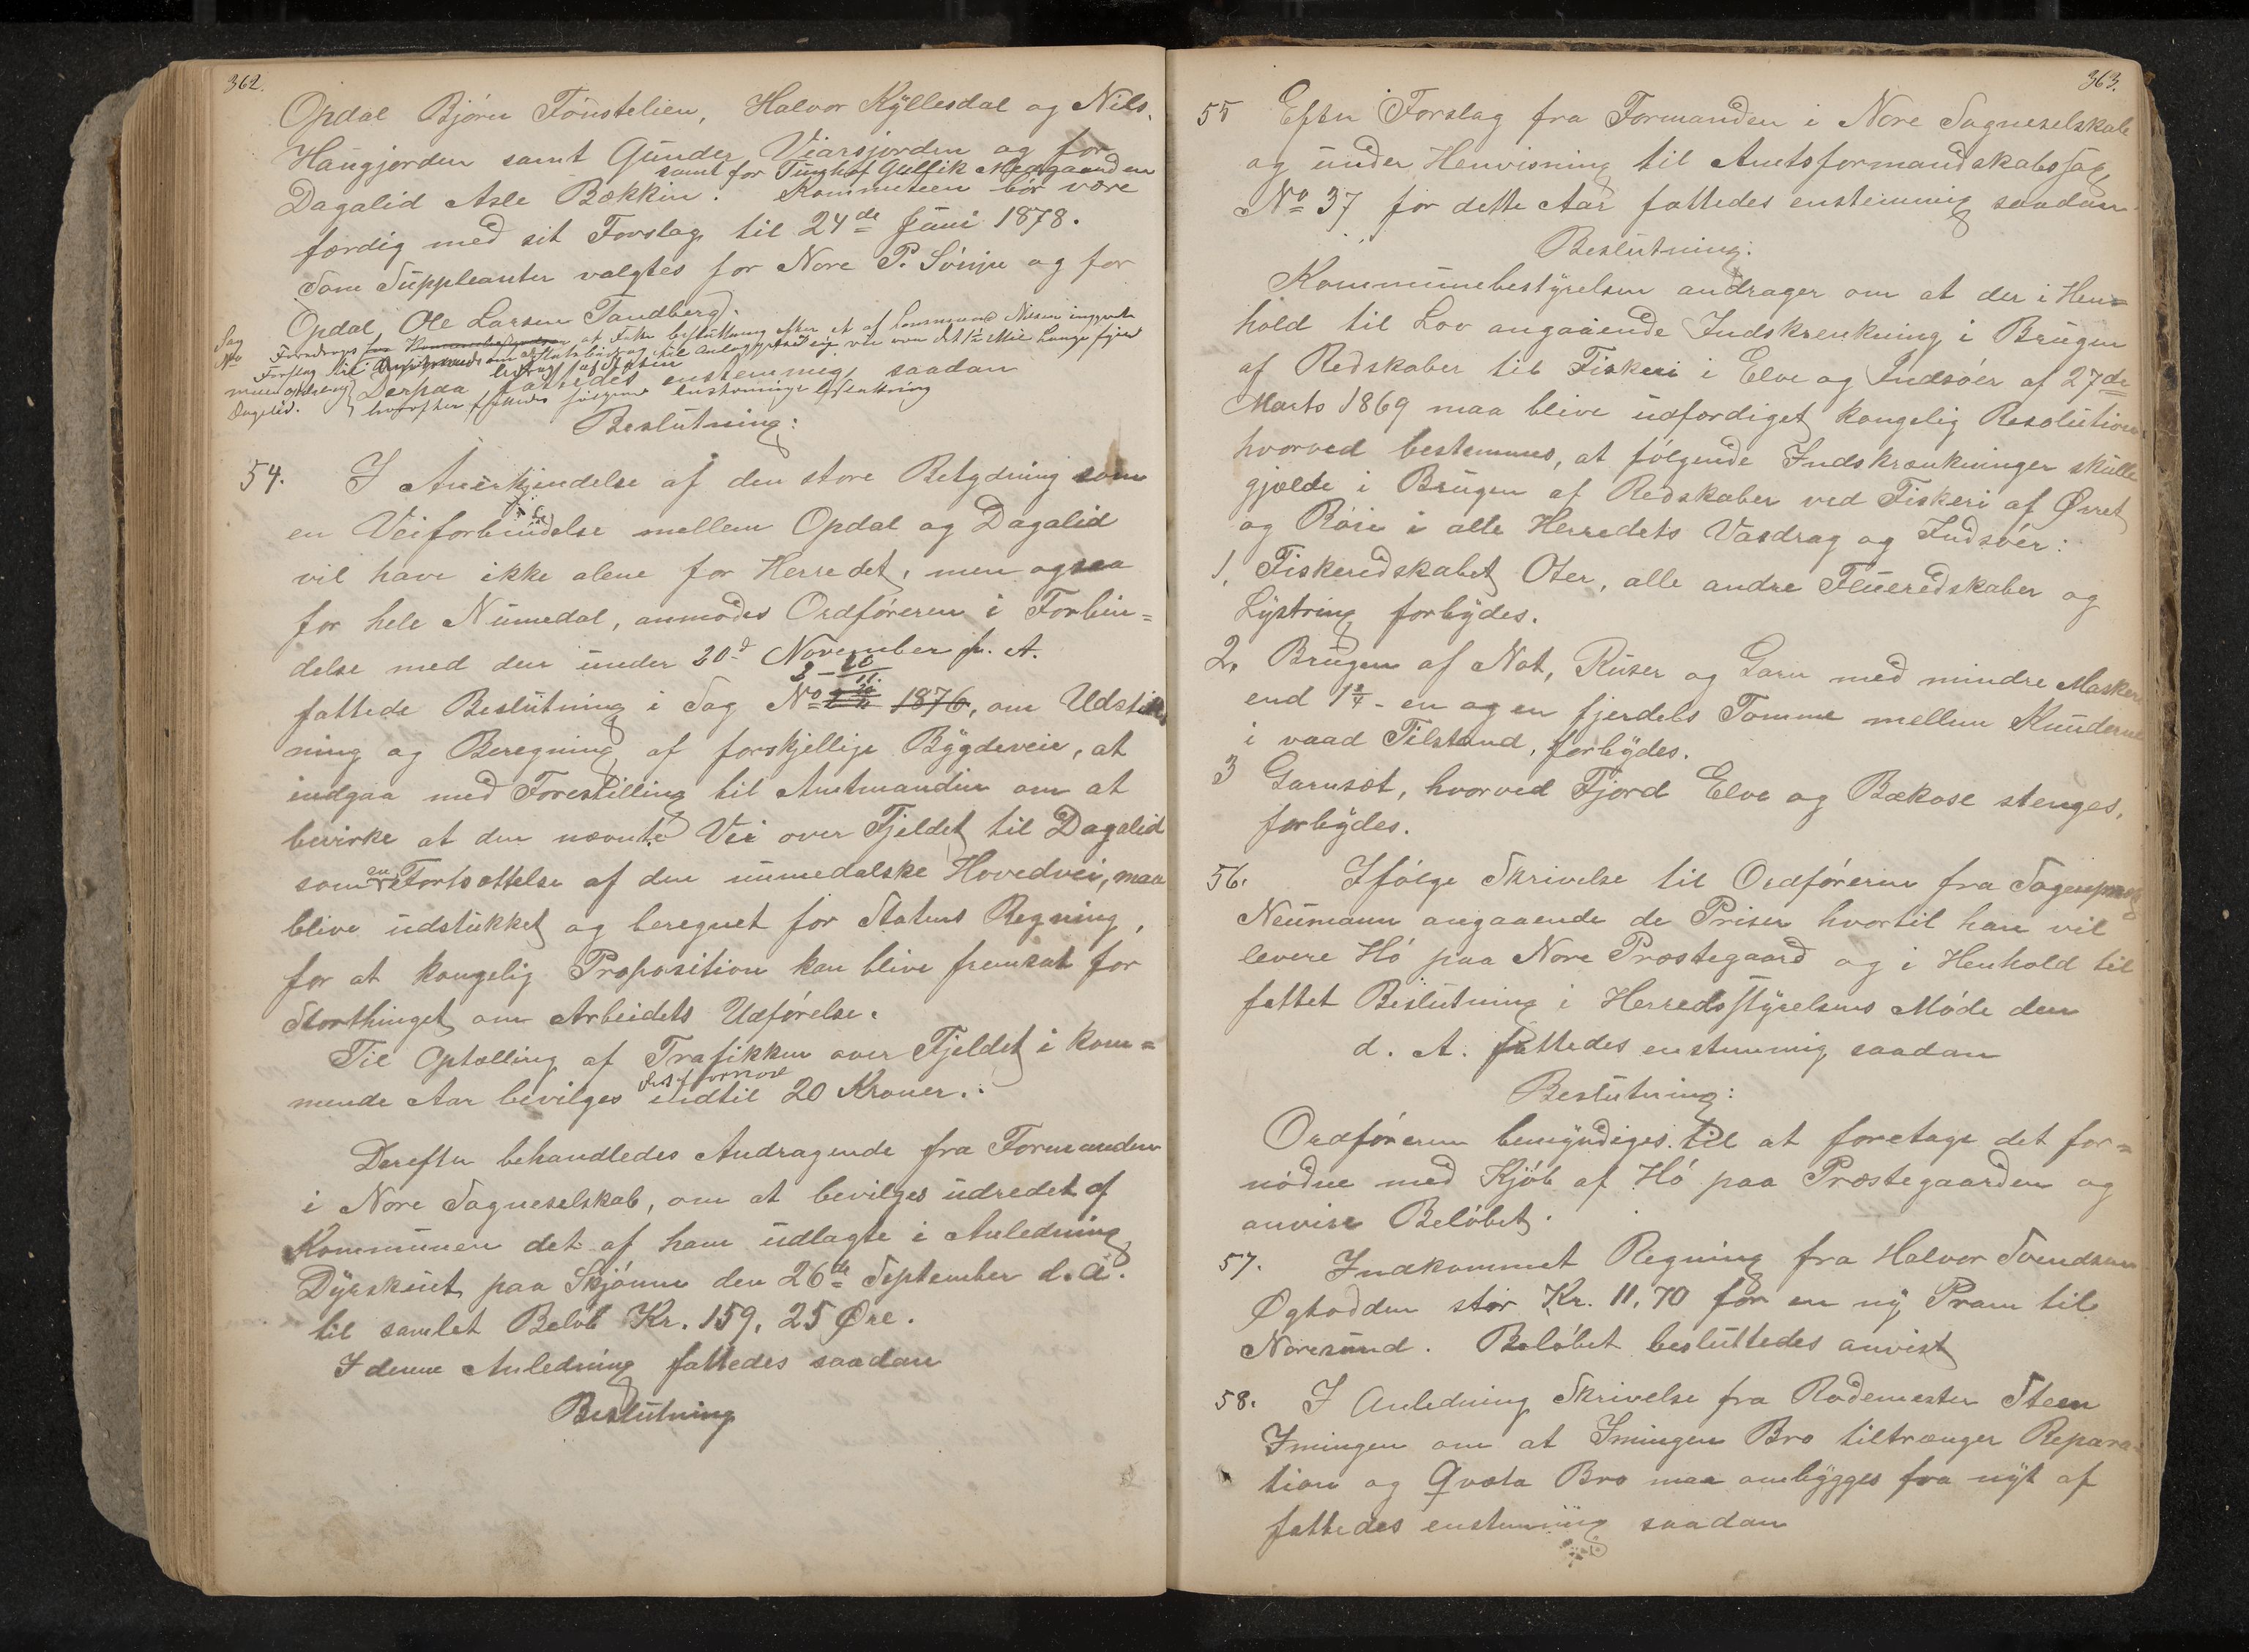 362.
Opdal Bjørn Tønstelien, Halvor Kyllesdal og Nils
Haugjorden samt Gunder Viarsjorden og for
samt for Tunghof Gullik Mergaarden
Dagalid Asle Bækkin. Kommiteen bør være
færdig med sit Forslag til 24de Juni 1878.
Som Suppleanter valgtes for Nore P. Sønju og for
Opdal Ole Larsen Tandberg.
Sag
No
Foredroges at fatte beslutning efter et af
Forslag til
Dagalid.
Derpaa fattedes enstemmig saadan
hvorefter fattedes følgende enstemmige Beslutning
Beslutning:
54. I Anerkjendelse af den store Betydning som
en Veiforbindelse mellem Opdal og Dagalid
vil have ikke alene for Herredet, men ogsaa
for hele Numedal, anmodes Ordføreren i Forbin=
delse med den under 20d November f. A.
fattede Beslutning i Sag No 1876, om Udstik
ning og Beregning af forskjellige Bygdeveie, at
indgaa med Forestilling til Amtmanden om at
bevirke at den nævnte Vei over Fjeldet til Dagalid
som en Fortsættelse af den numedalske Hovedvei, maa
blive udstukket og beregnet for Statens Regning,
for at kongelig Proposition kan blive fremsat for
Storthinget om Arbeidets Udførelse.
Til Optælling af Trafikken over Fjeldet i kom=
mende Aar bevilges indtil 20 Kroner.
Derefter behandledes Andragende fra Formanden
i Nore Sogneselskab, om at bevilges udredet af
Kommunen det af ham udlagte i Anledning
Dyrskuet paa Skjønne den 26de September d.a.
til samlet Beløb Kr. 159, 25 Øre.
I denne Anledning fattedes saadan
Beslutning
363.
55 Efter Forslag fra Formanden i Nore Sogneselskab
og under Henvisning til Amtsformandskabssag
No 37 for dette Aar fattedes enstemmig saadan
Beslutning:
Kommunebestyrelsen andrager om at der i Hen=
hold til Lov angaaende Indskrenkning i Brugen
af Redskaber til Fiskeri i Elve og Indsøer af 27de
Marts 1869 maa blive udfærdiget kongelig Resolution
hvorved bestemmes, at følgende Indskrænkninger skulle
gjælde i Brugen af Redskaber ved Fiskeri af Ørret
og Røie i alle Herredets Vasdrag og Indsøer:
1. Fiskeredskabet Oter, alle andre Flueredskaber og
Lystring forbydes.
2. Brugen af Not, Ruser og Garn med mindre Masker
end 1¼ - en og en fjerdels Tomme mellem Knuderne
i vaad Tilstand, forbydes.
3 Garnsæt, hvorved Fjord Elve og Bækose stenges,
forbydes.
56. Ifølge Skrivelse til Ordføreren fra Sogneprest
Neumann angaaende de Priser hvortil han vil
levere Hø paa Nore Præstegaard og i Henhold til
fattet Beslutning i Herredsstyrelsens Møde den
d. A. fattedes enstemmig saadan
Beslutning:
Ordføreren bemyndiges til at foretage det for=
nødne med Kjøb af Hø paa Præstegaarden og
anvise Beløbet.
57. Indkommet Regning fra Halvor Svendsen
Øgtodden stor Kr. 11,70 for en ny Pram til
Noresund. Beløbet besluttedes anvist
58. I Anledning Skrivelse fra Rodemester Steen
Imingen om at Imingen Bro tiltrænger Repara=
tion og Qvæta Bro maa ombygges fra nyt af
fattedes enstemmig saadan